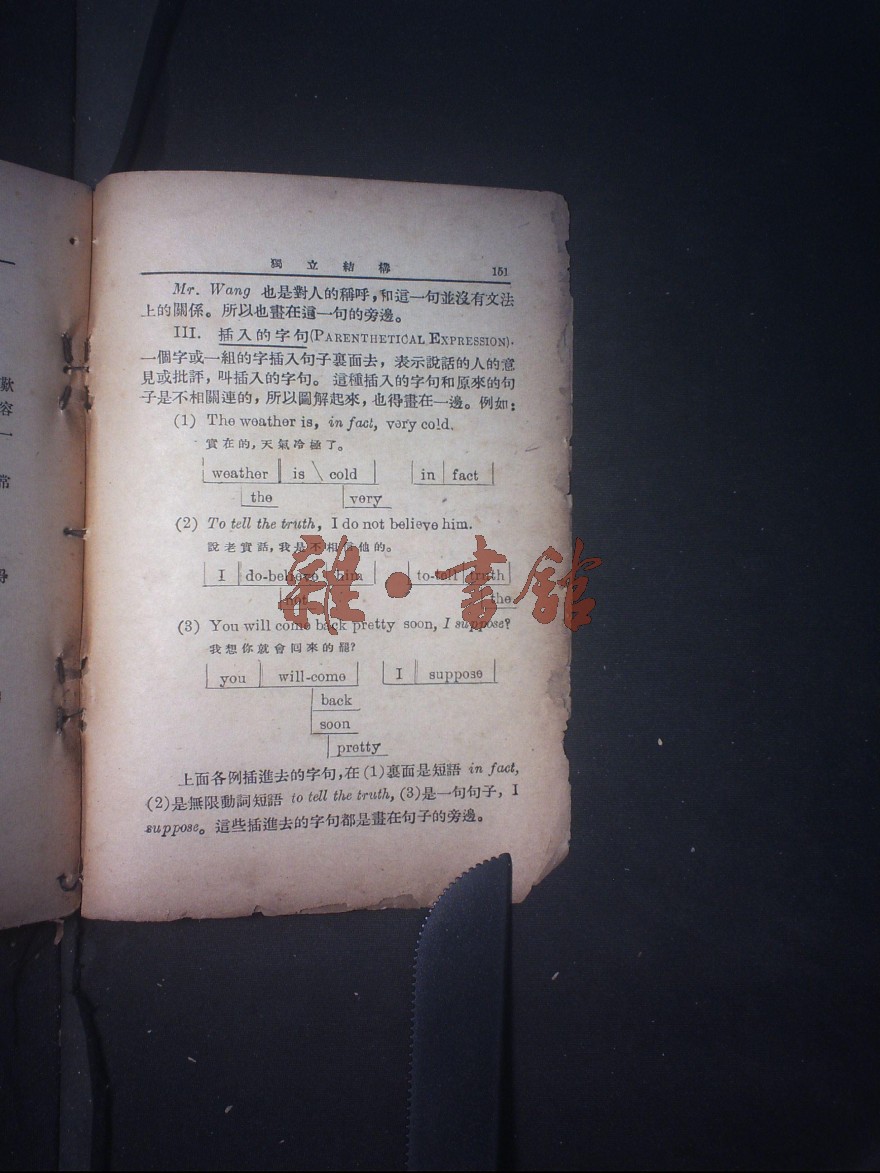 獨立結構 151
Mr. Wang 也是對人的稱呼，和這一句並沒有文法
上的關係。所以也畫在這一句的旁邊。
III. 插入的字句(PARENTHETICAL EXPRESSION).
一個字或一組的字插入句子裏面去，表示說話的人的意
見或批評，叫插入的字句。這種插入的字句和原來的句
子是不相關連的，所以圖解起來，也得畫在一邊。例如：
(1) The weather is, in fact, very cold.
實在的，天氣冷極了。
weather is cold in fact
the very
(2) To tell the truth, I do not believe him.
說老實話，我是不相信他的。
I do-believe him to-tell truth
not the
(3) You will come back pretty soon, I suppose?
我想你就會回來的罷?
you will-come I suppose
back
soon
pretty
上面各例插進去的字句，在(1)裏面是短語 in fact,
(2)是無限動詞短語 to tell the truth, (3)是一句句子，I
suppose。這些插進去的字句都是畫在句子的旁邊。
雜·書館
歉
容
一
常